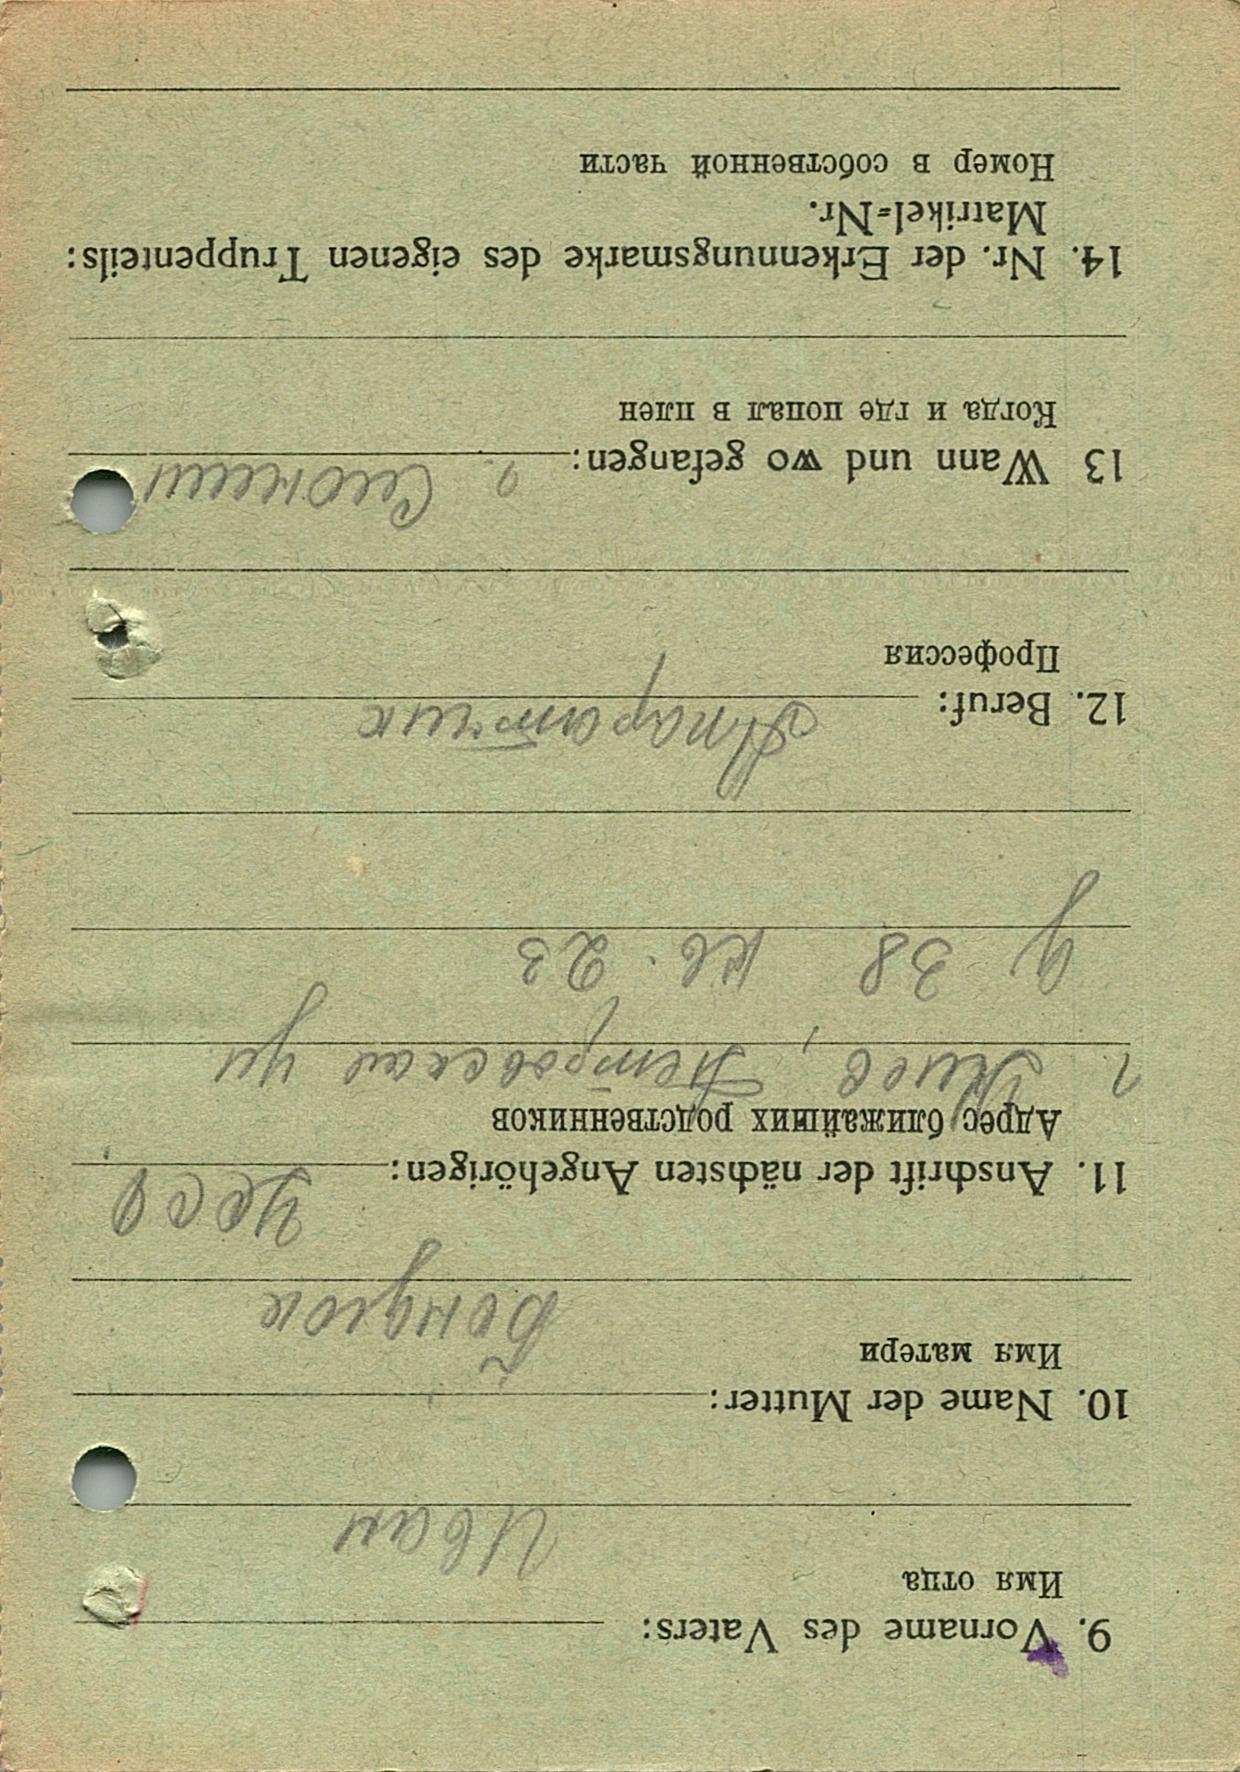 9. Vorname des Vaters:
Имя отца
Иван
10. Name der Mutter:
Имя матери
Бондюк
11. Anschrift der nächsten Angehörigen: УССР
Адрес ближайших родственников
г Киев, Петровская ул
д 38 кв. 23
12. Beruf: Апаратчик
Профессия
13 Wann und wo gefangen: г.
Когда и где попал в плен
14. Nr. der Erkennungsmarke des eigenen Truppenteils:
Matrikel=Nr.
Номер в собственной части